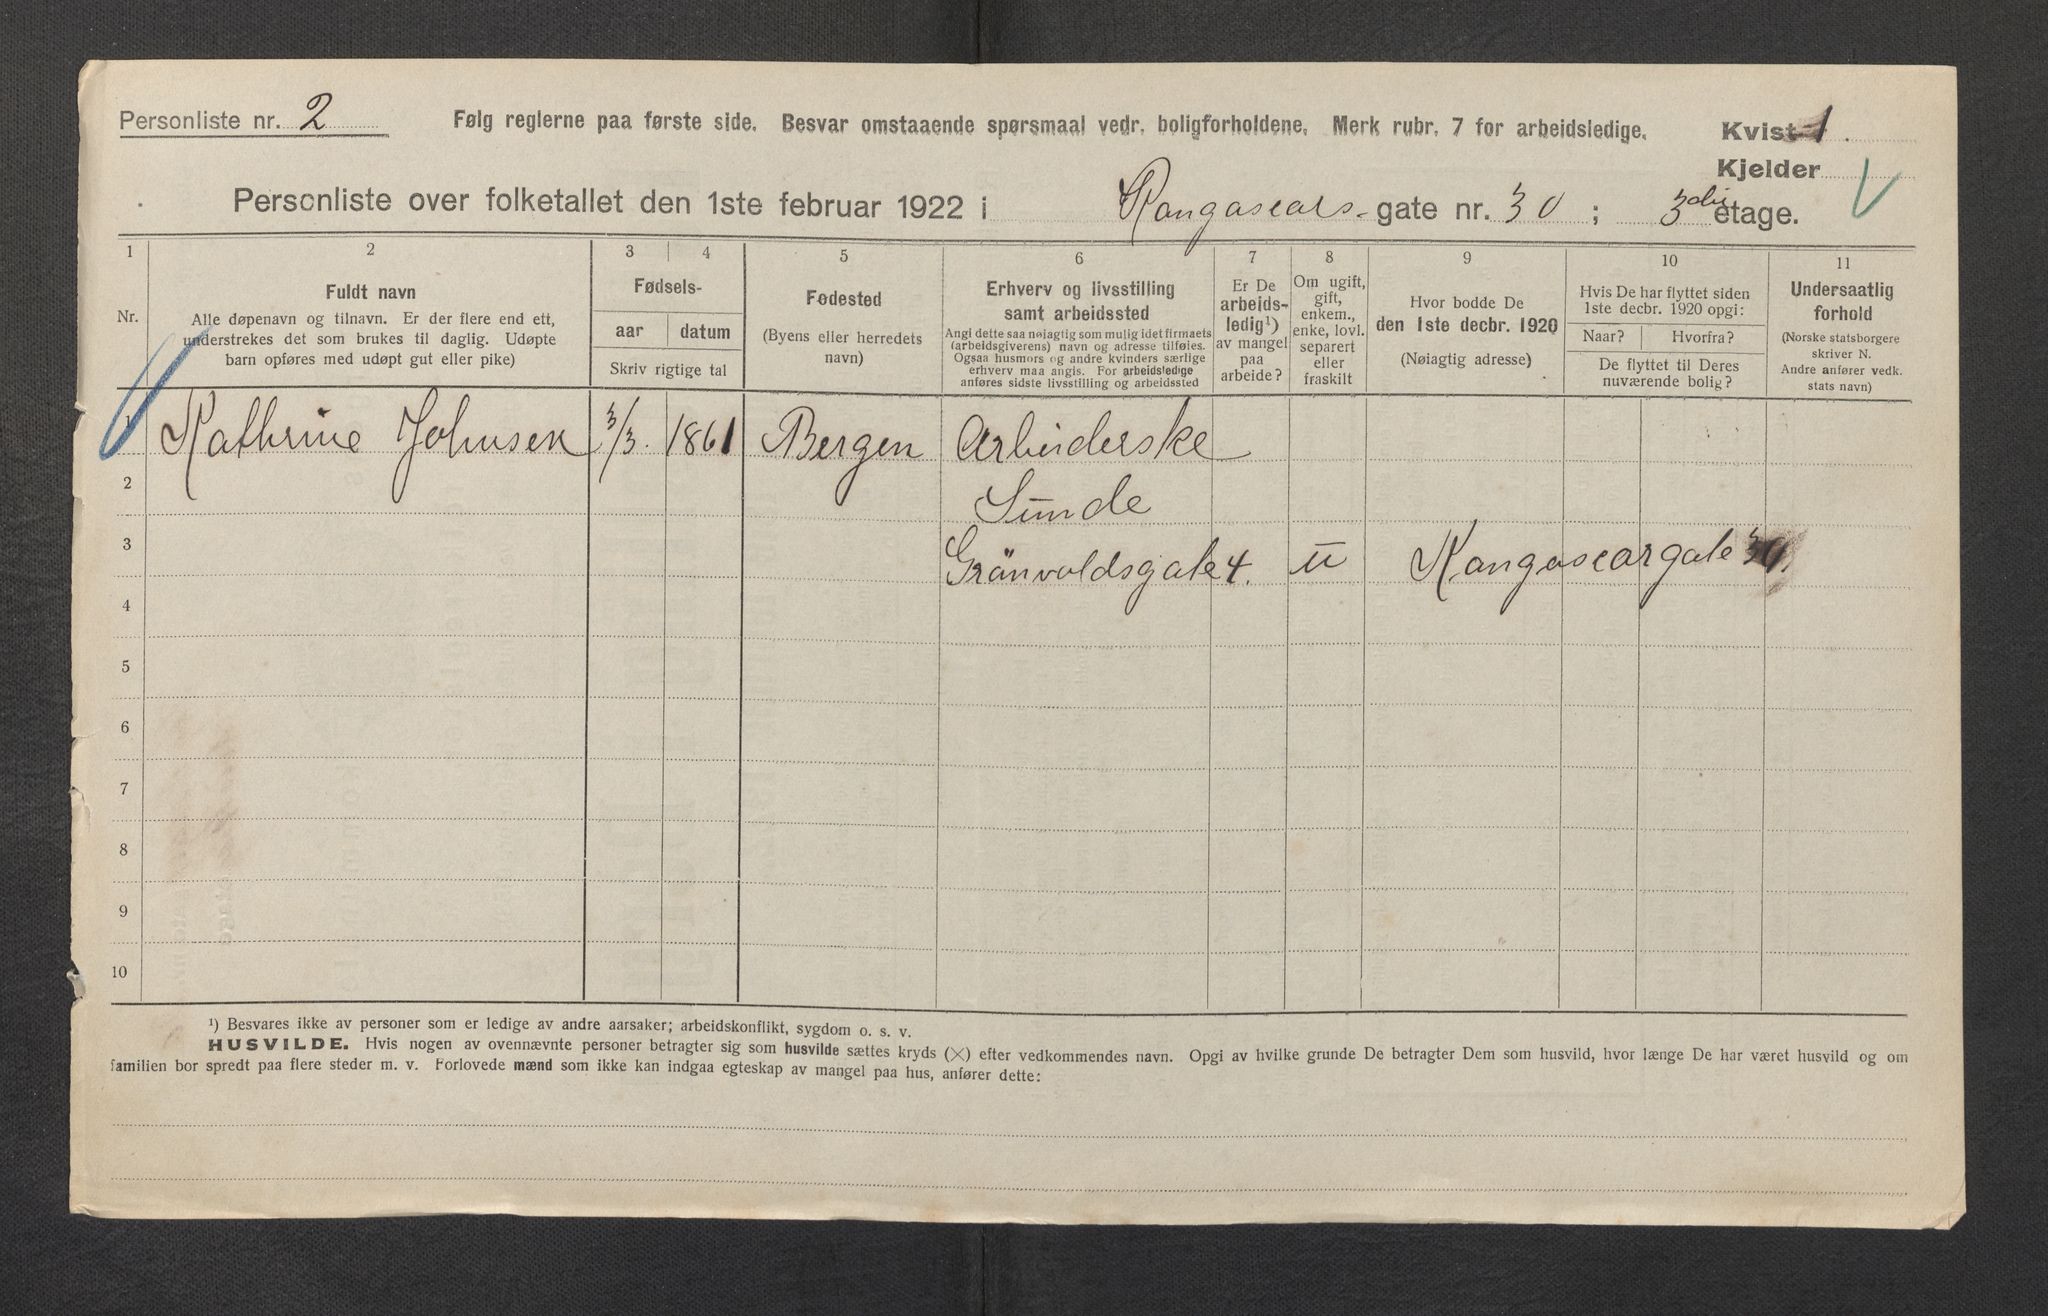 Personliste nr. 2
Følg reglerne paa første side. Besvar omstaaende spørsmaal vedr. boligforholdene. Merk rubr. 7 for arbeidsledige.
Kvist 1
Kjelder
Personliste over folketallet den 1ste februar 1922 i Kangasears-gate nr. 30 ; 3die etage.
1 2 3 4 5 6 7 8 9 10 11
Nr.
Fuldt navn
Alle døpenavn og tilnavn. Er der flere end ett,
understrekes det som brukes til daglig. Udøpte
barn opføres med udøpt gut eller pike)
Fødsels-
aar datum
Skriv rigtige tal
Fødested
(Byens eller herredets
navn)
Erhverv og livsstilling
samt arbeidssted
Angi dette saa nøiagtig som mulig idet firmaets
(arbeidsgiverens) navn og adresse tilføies.
Ogsaa husmors og andre kvinders særlige
erhverv maa angis. For arbeidsledige
anføres sidste livsstilling og arbeidssted
Er De
arbeids-
ledig¹)
av mangel
paa
arbeide?
Om ugift,
gift,
enkem.,
enke, lovl.
separert
eller
fraskilt
Hvor bodde De
den 1ste decbr. 1920
(Nøiagtig adresse)
Hvis De har flyttet siden
1ste decbr. 1920 opgi:
Naar? Hvorfra?
De flyttet til Deres
nuværende bolig?
Undersaatlig
forhold
(Norske statsborgere
skriver N.
Andre anfører vedk.
stats navn)
1 Kathrine Johnsen 3/3. 1861 Bergen Arbeiderske
2 Sunde
3 Grönvoldsgate 4. u Kangaseargate 30.
4
5
6
7
8
9
10
¹) Besvares ikke av personer som er ledige av andre aarsaker; arbeidskonflikt, sygdom o. s. v.
HUSVILDE. Hvis nogen av ovennævnte personer betragter sig som husvilde sættes kryds (×) efter vedkommendes navn. Opgi av hvilke grunde De betragter Dem som husvild, hvor længe De har været husvild og om
familien bor spredt paa flere steder m. v. Forlovede mænd som ikke kan indgaa egteskap av mangel paa hus, anfører dette: